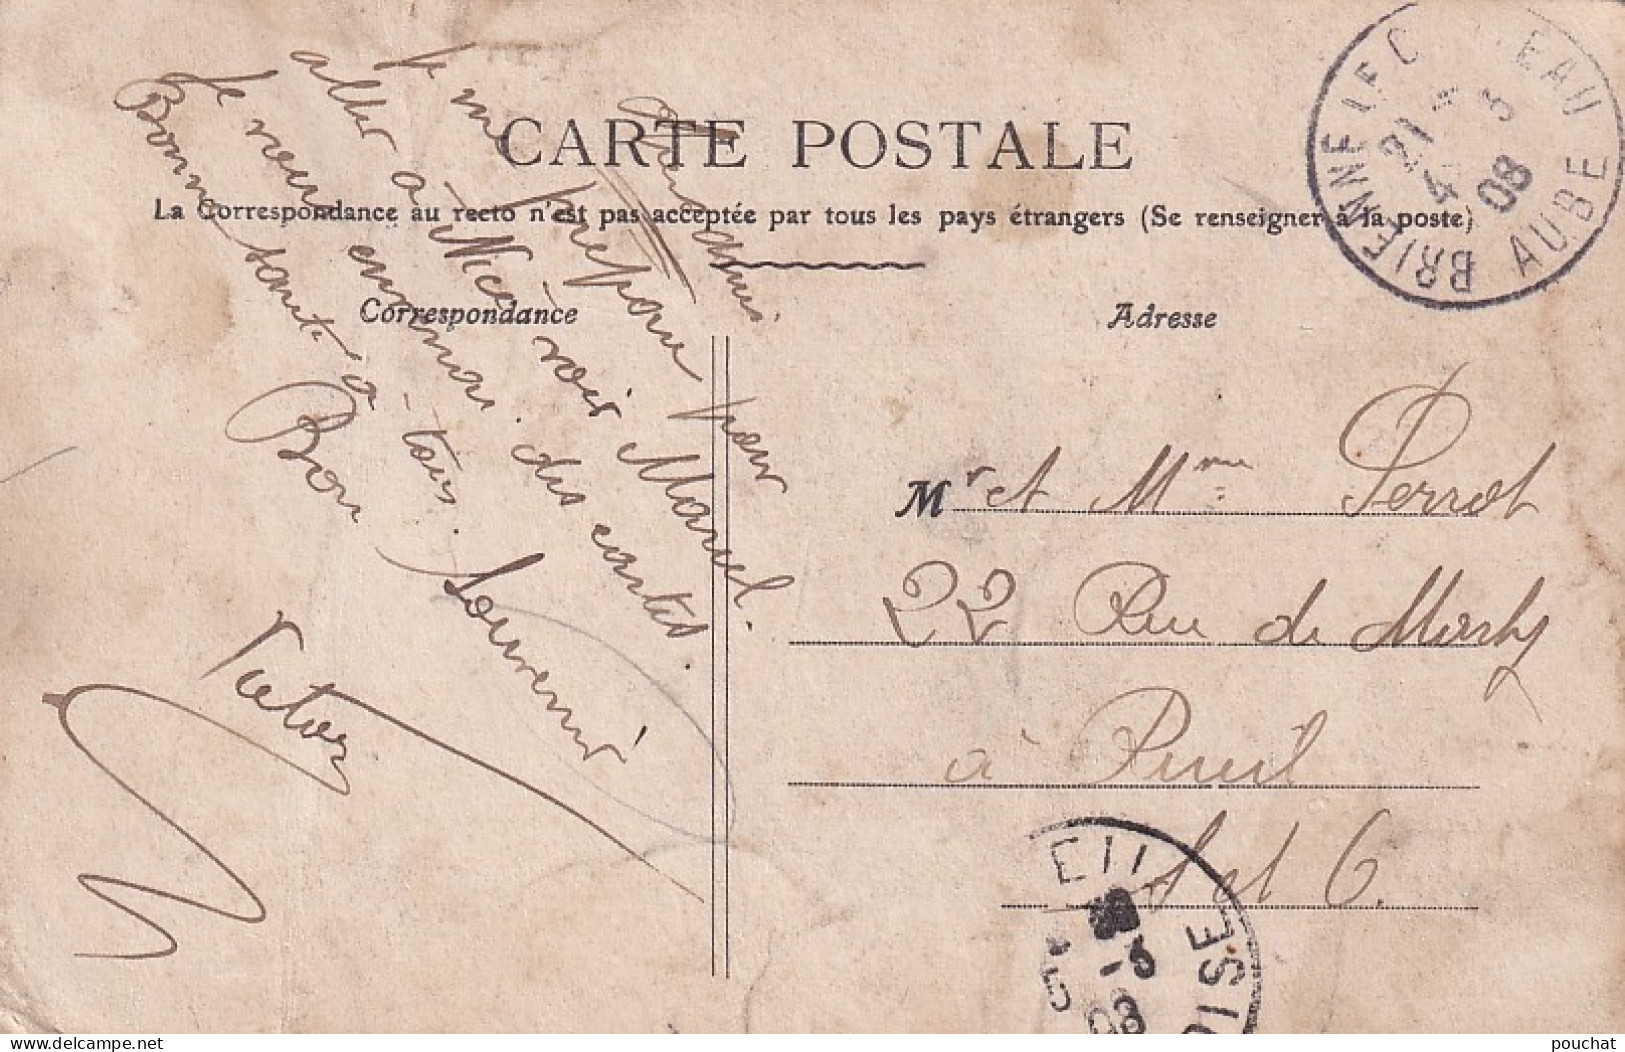 CARTE POSTALE
La Correspondance au recto n'est pas acceptée par tous les pays étrangers (Se renseigner à la poste)
Correspondance
Adresse
Je me prépare pour
aller à Nice voir Marcel.
Je vous enverrai des cartes.
Bonne santé à tous.
Bon Souvenir
Victor
Mr et Mme Perrot
22 Rue de
à Rueil
S et O.
BRIENNE LE C EAU
21
4 3
08
AUBE
EIL
3
08
OISE
pouchat